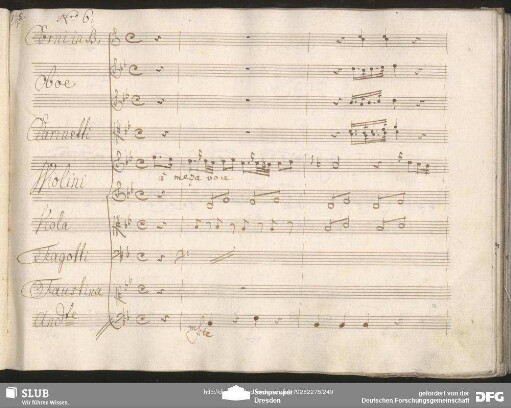 No. 6.
Corni in B.
Oboe
Clarinetti
Violini
a meza voce
Viola
Fagotti
Faustina
And.te
SLUB
Wir führen Wissen.
Dresden
gefördert von der
Deutschen Forschungsgemeinschaft
DFG